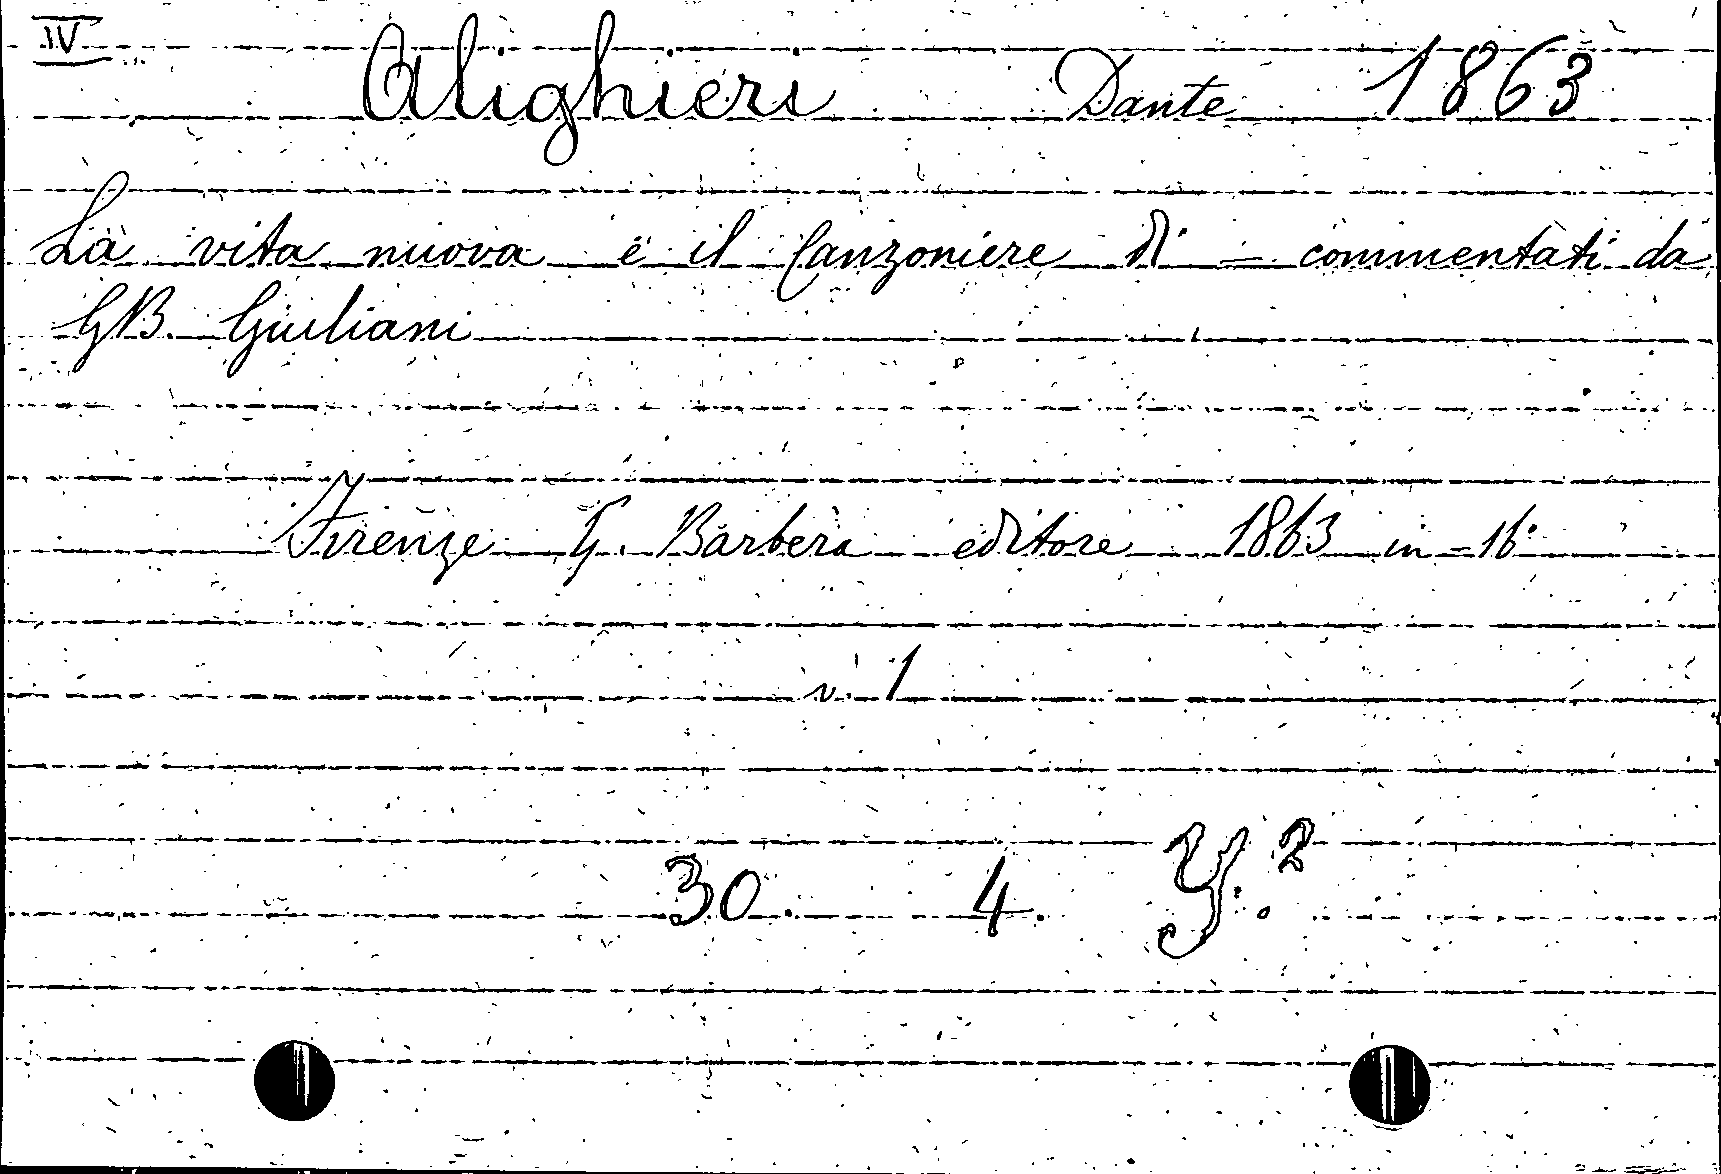 IV
Alighieri Dante 1863
La vita nuova e il Canzoniere di — commentati da
G.B. Giuliani
Firenze G. Barbèra editore 1863 in-16°
v. 1
30. 4. Y.²